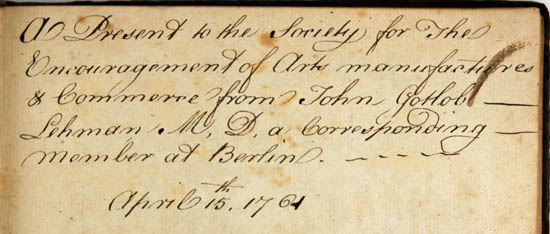 A Present to the Society for The
Encouragement of Arts manufactures
& Commerce from John Gotlob —
Lehman M, D, a Corresponding —
member at Berlin. — — — —
April 15,th 1761